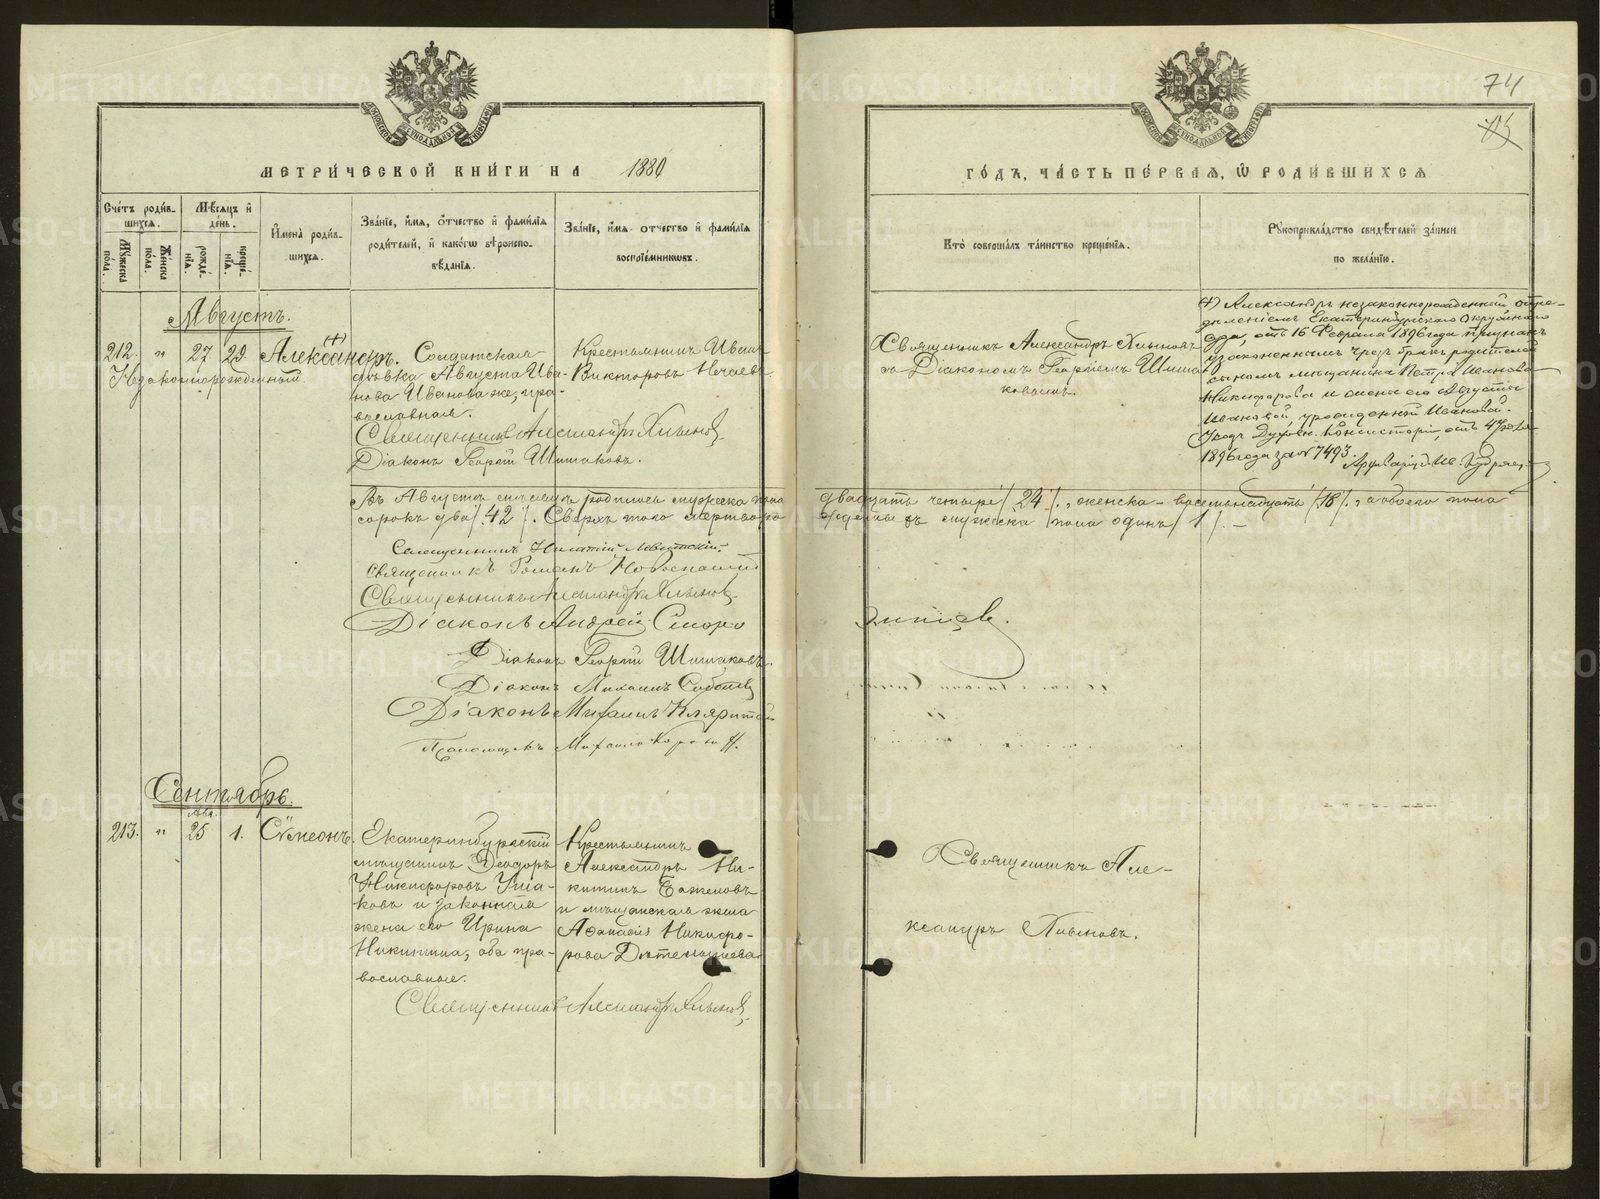 74
МЕТРИ́ЧЕСКОЙ КНИ́ГИ НА 1880
ГО́ДЪ, ЧА́СТЬ ПЕ́РВАЯ, Ѡ҆ РОДИ́ВШИХСЯ
Сче́тъ роди́в-
шихся.
Му́жеска по́ла.
Же́нска по́ла.
Мѣ́сяцъ и҆ де́нь.
рожде́-нїя.
креще́-нїя.
И҆мена̀ роди́в-
шихся.
Зва́нїе, и҆́мя, ѻ҆́тчество и҆ фами́лїя
роди́телей, и҆ како́гѡ вѣроиспо-
вѣ́данїя.
Зва́нїе, и҆́мя, ѻ҆́тчество и҆ фами́лїя
воспрїе́мникѡвъ.
Кто̀ соверша́лъ та́инство креще́нїя.
Рꙋкоприкла́дство свидѣ́телей за́писи
по жела́нїю.
Августъ.
212. " 27 29. Александръ.
Незаконнорожденный
Солдатская
дѣвка Августа Ива-
нова Иванова же, пра-
вославная.
Священникъ Александръ Хлыновъ
Діаконъ Георгій Шишаковъ.
Крестьянинъ Иванъ
Викторовъ Нечаевъ
Священникъ Александръ Хлыновъ
съ Діакономъ Георгіемъ Шиша
ковымъ.
(+) Александръ незаконнорожденный опре-
дѣленіемъ Екатеринбургскаго Окружнаго
Суда, отъ 16 Февраля 1896 года признанъ
узаконеннымъ чрез бракъ родителей
сыномъ мѣщанина Петра Иванова
Никифорова и жены его Августы
Ивановой, урожденной Ивановой.
Указъ Духовн. Консисторіи, отъ
1896 года за № 7493.
Въ Августѣ мѣсяцѣ родилось мужеска пола двадцать четыре /24/, женска - восемьнадцать /18/, а обоего пола
сорокъ два /42/. Сверхъ того мертво мужеска пола одинъ /1/. -
Священникъ Игнатій Левитскій.
Священникъ Романъ
Священникъ Александръ Хлыновъ
Діаконъ Андрей
Діаконъ Георгій Шишаковъ.
Діаконъ Михаилъ
Діаконъ Михаилъ
Псаломщикъ Михаилъ
Сентябрь.
Авг.
213. " 25 1. Сѵмеонъ.
Екатеринбургскій
мѣщанинъ Ѳеодоръ
Никифоровъ Уша-
ковъ и законная
жена его Ирина
Никитина, оба пра-
вославные.
Священникъ Александръ Хлыновъ
Крестьянинъ
Александръ Ни-
китинъ Баженовъ
и мѣщанская жена
Аѳанасія Никифо-
рова
Священникъ Але-
ксандръ Хлыновъ.
METRIKI.GASO-URAL.RU